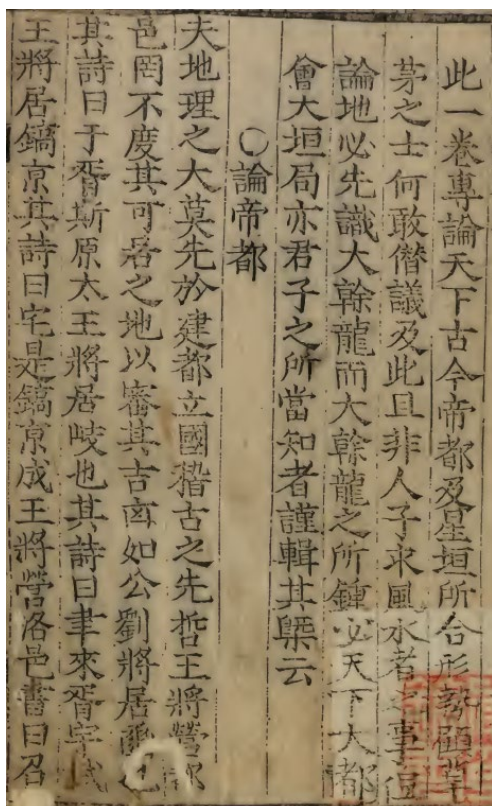 此一卷專論天下古今帝都及星垣所合形勢顧草
茅之士何敢僣議及此且非人子求風水者之事但
論地必先識大榦龍而大榦龍之所鍾必天下大都
會大垣局亦君子之所當知者謹輯其槩云
○論帝都
夫地理之大莫先於建都立國稽古之先哲王將營都
邑罔不度其可居之地以審其吉凶如公劉將居豳也
其詩曰于胥斯原太王將居岐也其詩曰聿來胥宇武
王將居鎬京其詩曰宅是鎬京成王將營洛邑書曰召